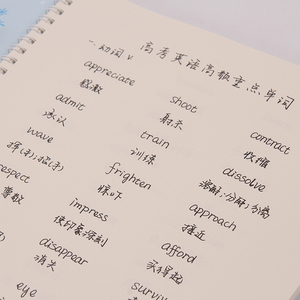 高考英语高频重点单词
一.动词 v
appreciate shoot contract
感激 射杀 收缩
admit train dissolve
承认 训练 溶解;分解;分离
wave frighten approach
挥(手);招(手) 惊吓 接近
respect impress afford
尊敬 使印象深刻 买得起
disappear
消失
eye